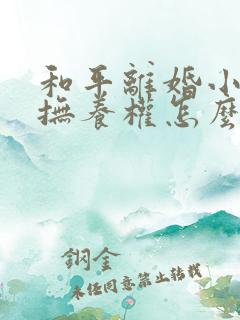 和平離婚小
撫養權怎麼
鋼金
未經同意禁止轉載